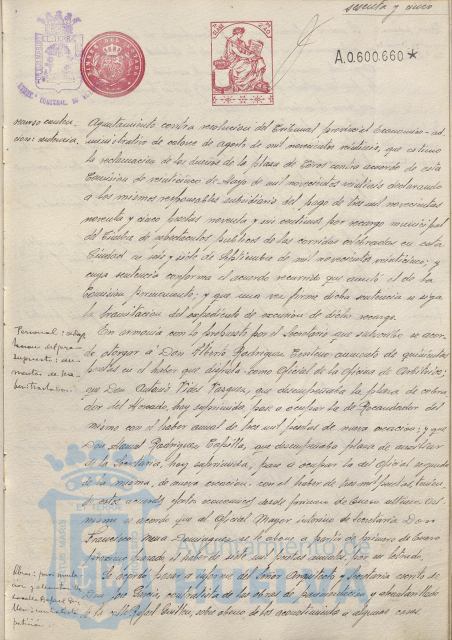 sesenta y cinco
A.0.600.660
recurso contencioso
Ayuntamiento contra resolución del Tribunal provincial Económico-ad-
ministrativo de catorce de agosto de mil novecientos veintiseis, que estimó
la reclamación de los dueños de la plaza de Toros contra acuerdo de esta
Comisión de veinticinco de Mayo de mil novecientos veintiseis declarando
a los mismos responsables subsidiarios del pago de tres mil novecientas
noventa y cinco pesetas noventa y seis céntimos por recargo municipal
del Timbre de espectáculos públicos de las corridas celebradas en esta
Ciudad en seis y siete de septiembre de mil novecientos veinticinco; y
cuya sentencia confirma el acuerdo recurrido que anuló el de la
Comisión permanente; y que una vez firme dicha sentencia se siga
la tramitación del expediente de exención de dicho recargo.
Personal:
En armonía con lo propuesto por el Secretario que suscribe se acor-
dó otorgar á Don Alberto Rodríguez aumento de quinientas
pesetas en el haber que disfruta como Oficial de la Oficina de Arbitrios;
que Don Antonio Vides Vazquez, que desempeñaba la plaza de cobra-
dor del Mercado, hoy suprimida, pase a ocupar la de Recaudador del
mismo con el haber anual de tres mil pesetas de nueva creación; y que
Don Manuel Rodríguez que desempeñaba plaza de auxiliar
de la Secretaría, hoy suprimida, pase a ocupar la del oficial segundo
de la misma, de nueva creación, con el haber de tres mil pesetas,
este acuerdo efectos económicos desde primero de Enero último. Asi-
mismo se acordó que al Oficial Mayor interino de Secretaría Don
Francisco Mora Dominguez se le abone a partir de primero de Enero
próximo pasado el haber de siete mil pesetas anuales, por su
Obras:
Se acordó pasar a informe del Señor Arquitecto y Secretaría escrito de
Don José García, contratista de las obras de pavimentación y alcantarillado
de la calle Rafael Guillén, sobre abono de los acometimientos a algunas casas